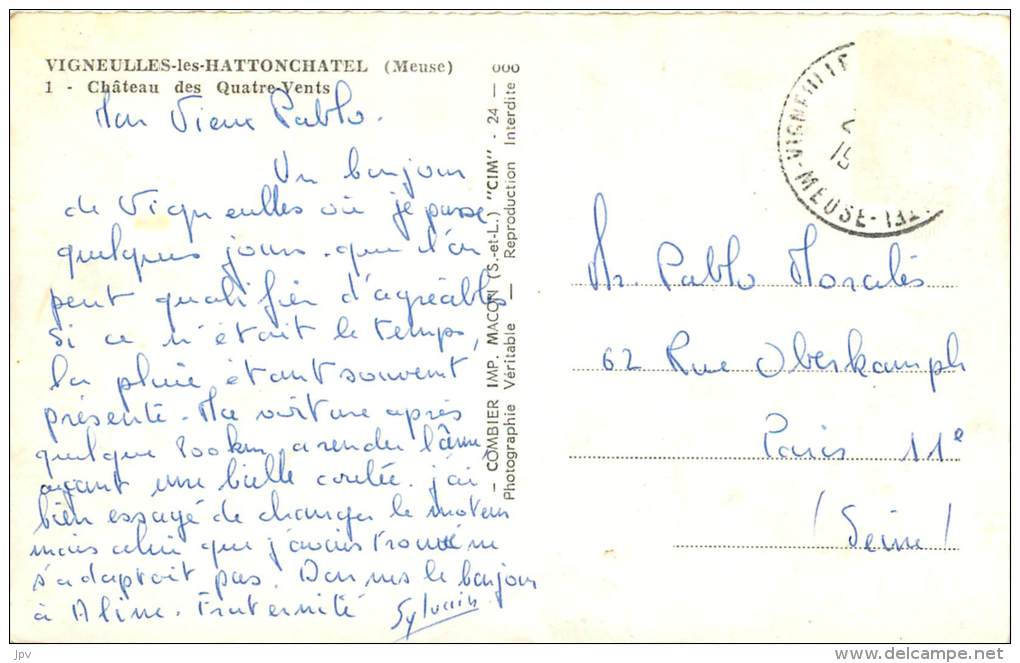 VIGNEULLES-les-HATTONCHATEL (Meuse)
1 - Château des Quatre-Vents
Mon Vieux Pablo.
Un bonjour
de Vigneulles où je passe
quelques jours. que l'on
peut qualifier d'agréables
si ce n'était le temps,
la pluie étant souvent
présente. Ma voiture après
quelque 800km, a rendu l'âme
ayant une bielle coulée. j'ai
bien essayé de changer le moteur
mais celui que j'avais trouvé ne
s'adaptait pas. Donnes le bonjour
à Aline. Fraternité
Sylvain
— COMBIER IMP. MACON (S.-et-L.) "CIM" - 24 —
Photographie Véritable — Reproduction Interdite
VIGNEULLE
MEUSE
Mr. Pablo Moralès
62 Rue Oberkampf
Paris 11e
(Seine)
jpv
www.delcampe.net